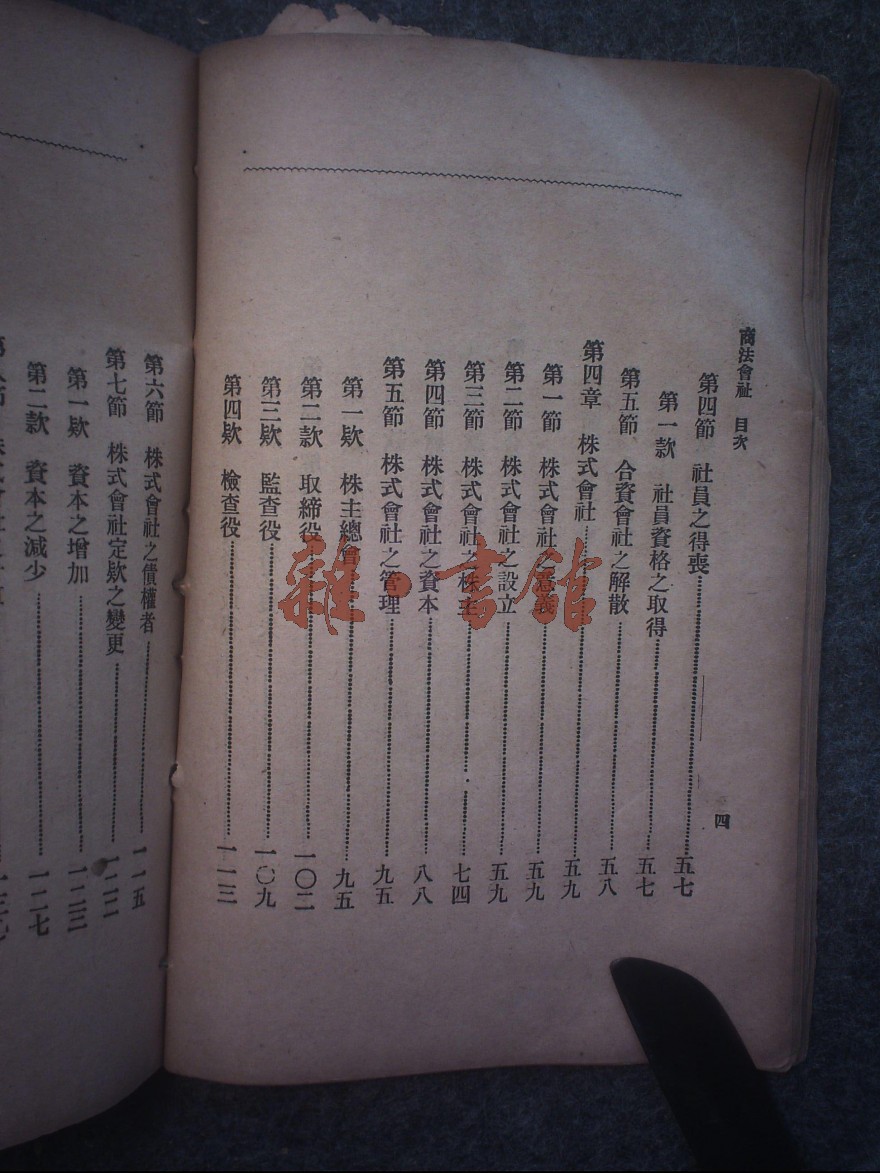 商法會社 目次
四
第四節 社員之得喪……五七
第一款 社員資格之取得……五七
第五節 合資會社之解散……五八
第四章 株式會社……五九
第一節 株式會社之意義……五九
第二節 株式會社之設立……五九
第三節 株式會社之株主……七四
第四節 株式會社之資本……八八
第五節 株式會社之管理……九五
第一欵 株主總會……九五
第二款 取締役……一〇二
第三欵 監查役……一〇九
第四欵 檢查役……一一三
第六節 株式會社之債權者……一一五
第七節 株式會社定欵之變更……一二二
第一欵 資本之增加……一二三
第二款 資本之減少……一二七
雜·書館